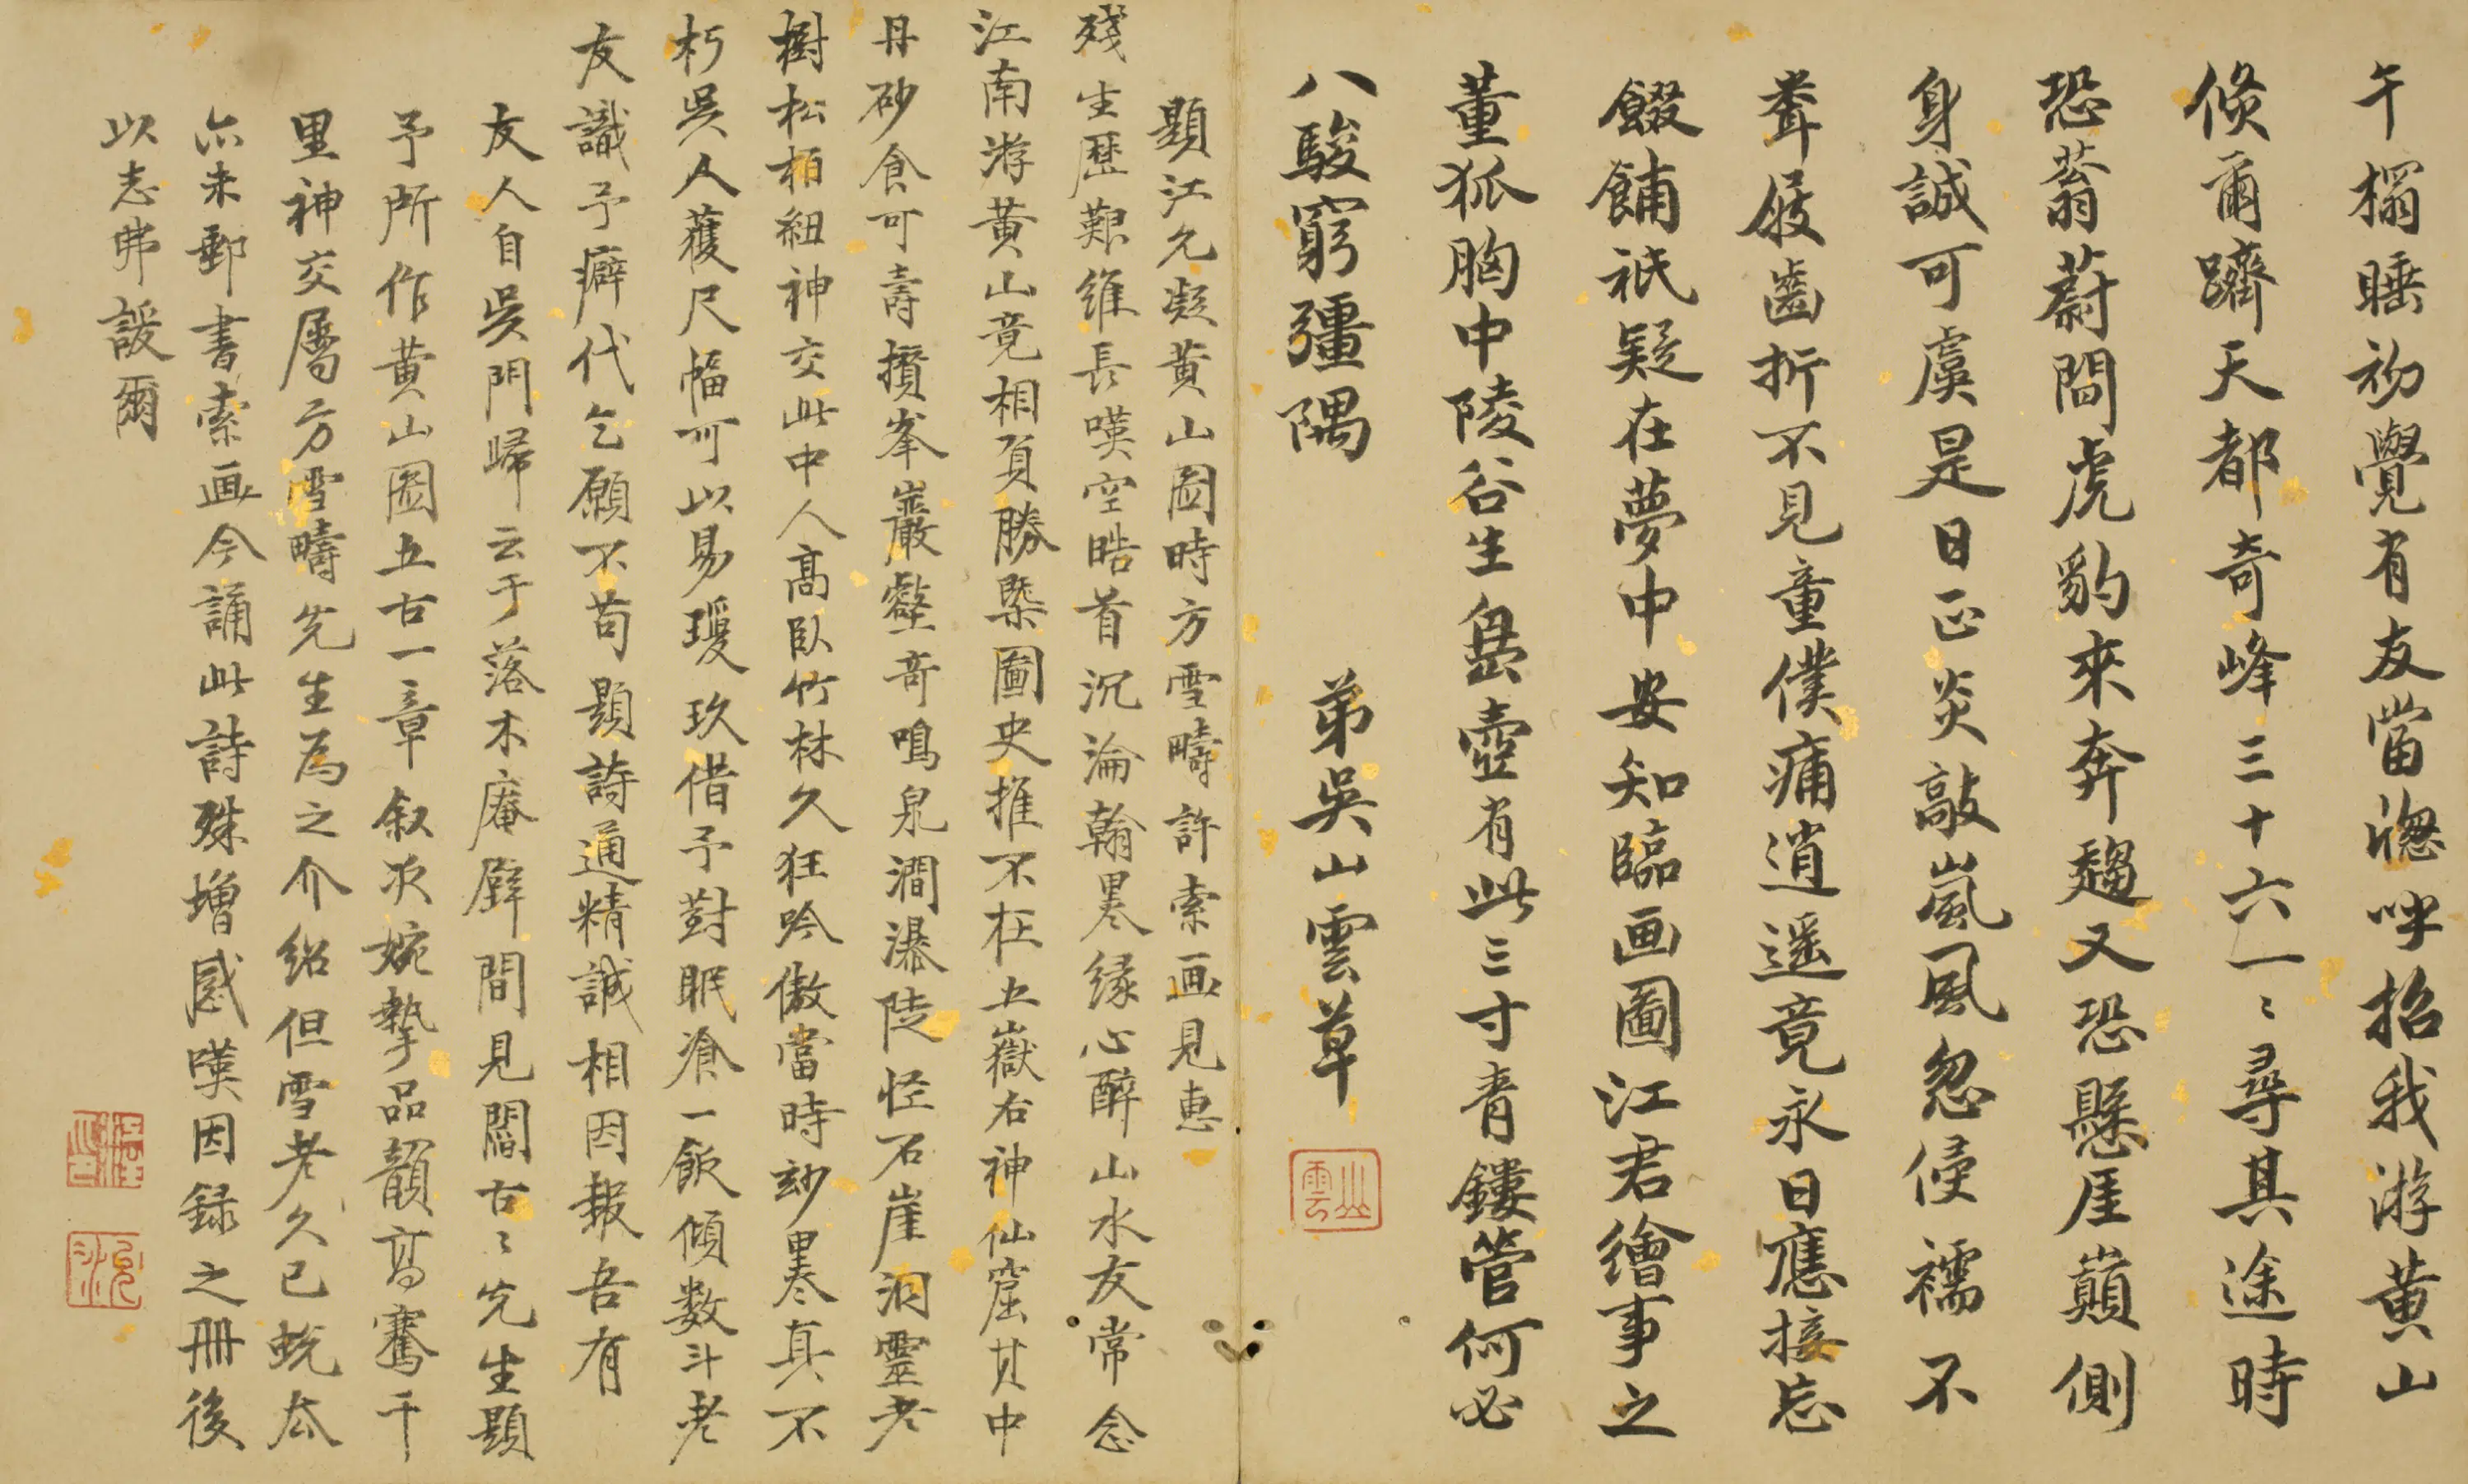 午榻睡初覺有友當窗呼招我游黃山
倐爾躋天都奇峰三十六一〻尋其途時
恐蓊蔚間虎豹來奔趨又恐懸厓巔側
身誠可虞是日正炎敲嵐風忽侵襦不
聋屐齒折不見童僕痡逍遥竟永日應接忘
餟餔祇疑在夢中安知臨画圖江君繪事之
董狐胸中陵谷生㠀壺有此三寸青鏤管何必
八駿窮彊隅
弟吳山雲草
山雲
題江允凝黃山圖時方雪疇許索画見惠
殘生歷艱維長嘆空皓首沉淪翰墨緣心醉山水友常念
江南游黃山竟相負勝槩圖史推不在五嶽右神仙窟其中
丹砂食可壽攢峯巖壑奇鳴泉澗瀑陡怪石崖洞靈老
樹松柏紐神交此中人高臥竹林久狂吟傲當時玅墨真不
朽吳人獲尺幅可以易瓊玖借予對眠飡一飯傾数斗老
友識予癖代乞願不苟題詩通精誠相因報吾有
友人自吳門歸云于落木庵壁間見闇古〻先生題
予所作黃山圖五古一章叙次婉摯品韻高騫千
里神交屬方雪疇先生為之介紹但雪老久已蛻厺
亦未郵書索画今誦此詩殊增感嘆因錄之冊後
以志弗諼爾